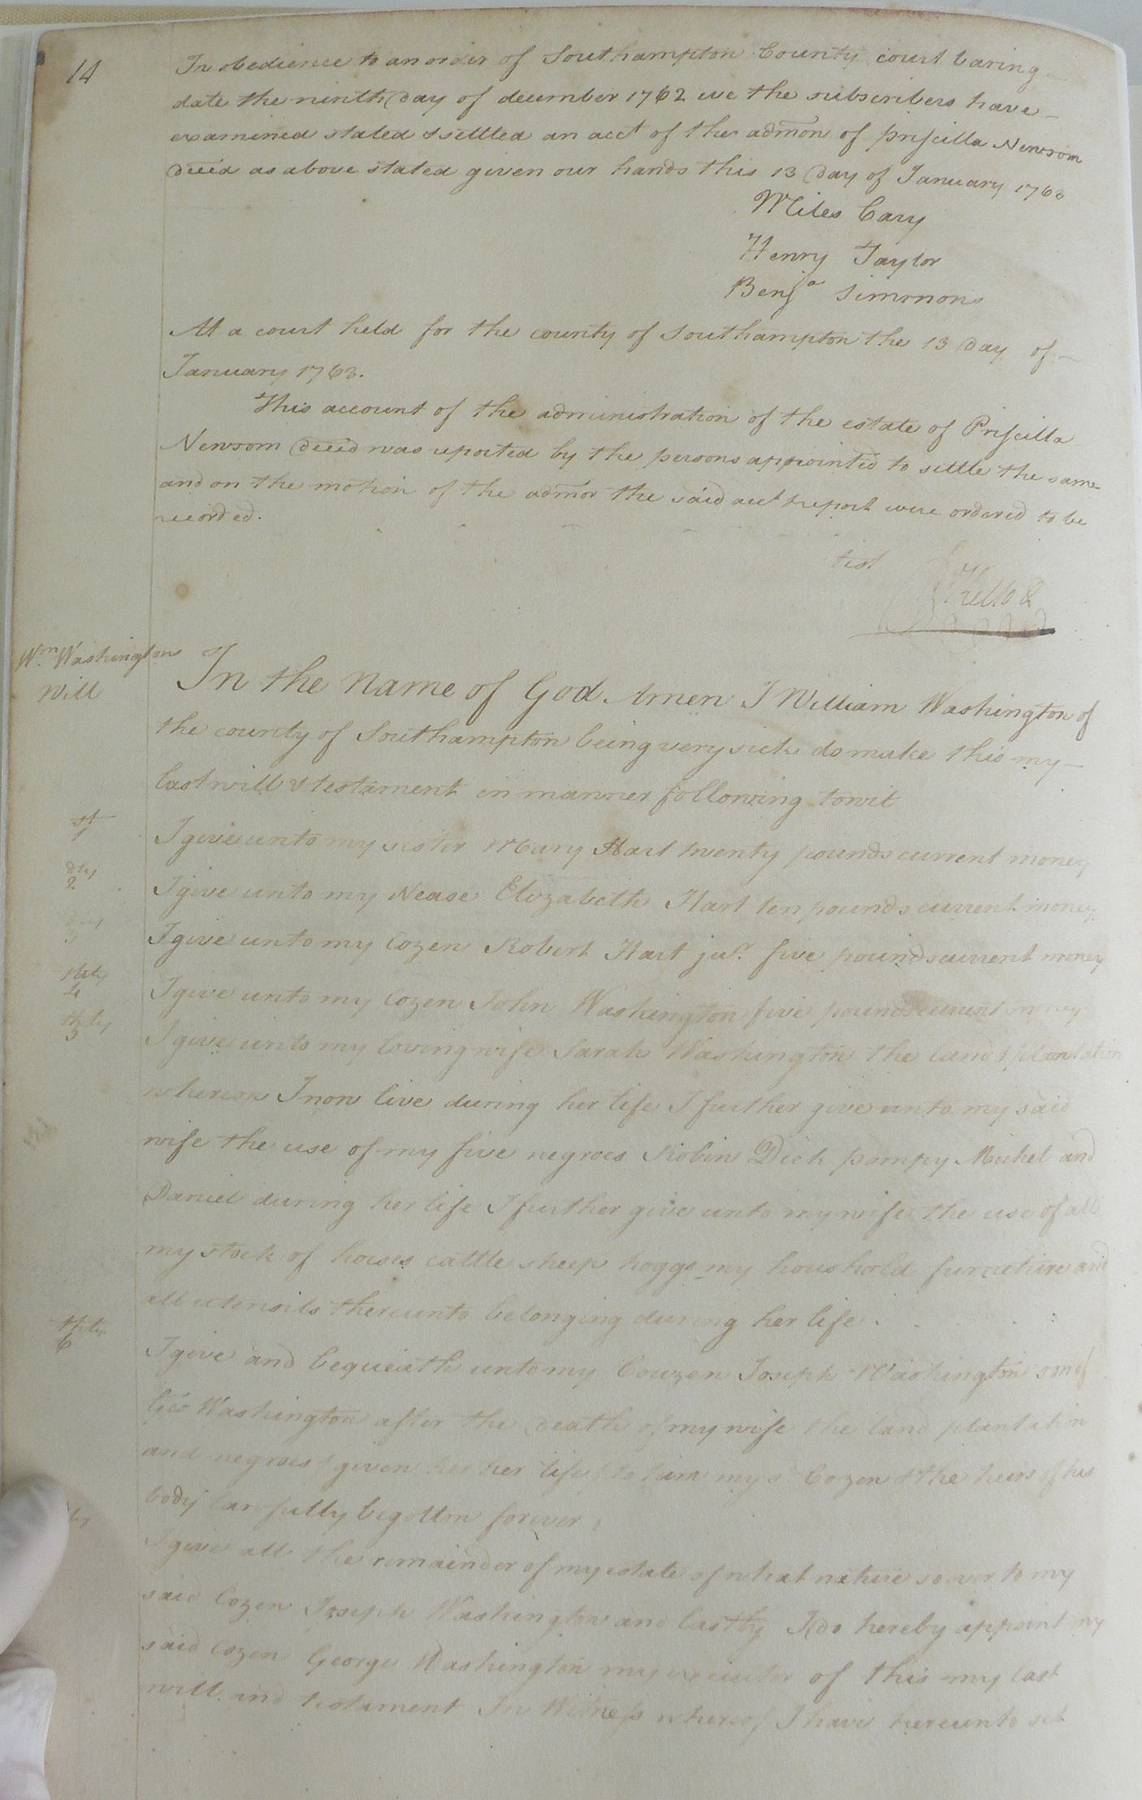 14
In obedience to an order of Southampton County court baring
date the ninth day of december 1762 we the subscribers have
examined stated & settled an acct of the admon of Priscilla Newsom
deced as above stated given our hands this 13 day of January 1763
Miles Cary
Henry Taylor
Benja Simmons
At a court held for the county of Southampton the 13 Day of
January 1763.
This account of the administration of the estate of Priscilla
Newsom deced was reported by the persons appointed to settle the same
and on the motion of the admor the said acct & report were ordered to be
recorded.
test
Wm Washingtons
Will
In the Name of God Amen I William Washington of
the county of Southampton being very sick do make this my
last will & testament in manner following towit
I give unto my sister Mary Hart twenty pounds current money
2
I give unto my Nease Elizabeth Hart ten pounds current money
3
I give unto my Cozen Robert Hart jur. five pounds current money
4
I give unto my Cozen John Washington five pounds current money
5
I give unto my loving wife Sarah Washington the land & plantation
whereon I now live during her life I further give unto my said
wife the use of my five negroes Robin Dick pompy Michel and
Daniel during her life I further give unto my wife the use of all
my stock of horses cattle sheep hoggs my houshold furneture and
all utensils thereunto belonging during her life.
6
I give and bequeath unto my Couzen Joseph Washington son of
Geo Washington after the death of my wife the land plantation
and negroes given her her life to him my Cozen & the heirs of his
body lawfully begotton forever
I give all the remainder of my estate of what nature soever to my
said Cozen Joseph Washington and lastly I do hereby appoint my
said Cozen George Washington my executor of this my last
will and testament In Witness whereof I have hereunto set